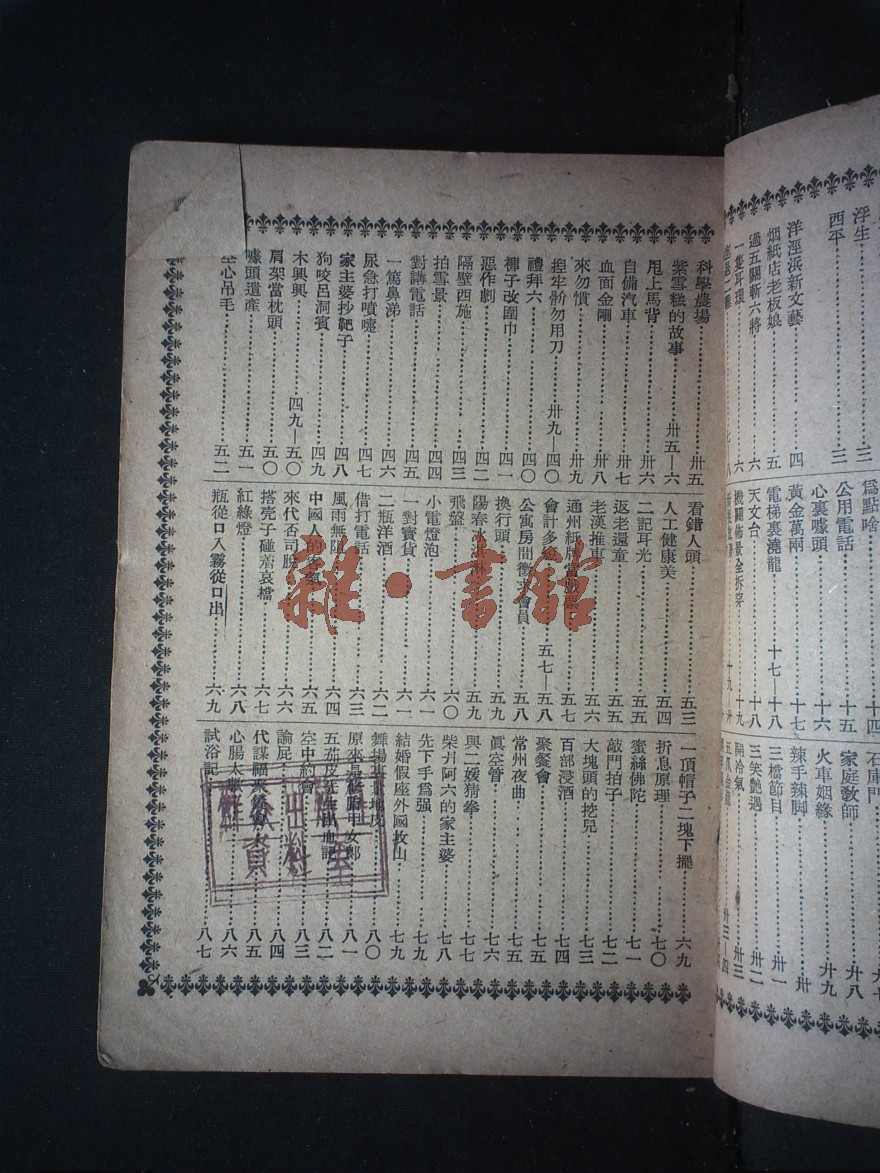 浮生……三
西平……三
洋涇浜新文藝……四
烟紙店老板娘……五
過五關斬六將……六
一隻耳環……六
爲點啥
公用電話……十五
心裏噱頭……十六
黃金萬兩……十七
電梯裏澆龍……十七—十八
天文台……十八
機關佈景全拆穿……十九
石庫門
家庭教師……廿八
火車姻緣……廿九
辣手辣脚……卅
三檔節目……卅一
三笑艷遇……卅二
開冷氣……卅三
科學農場……卅五
紫雪糕的故事……卅五—六
甩上馬背……卅六
自備汽車……卅七
血面金剛……卅八
來勿慣……卅九
捏牢髒勿用刀……卅九—四〇
禮拜六……四〇
褲子改圍巾……四一
惡作劇……四二
隔壁西施……四三
拍雪景……四四
對講電話……四五
一篤鼻涕……四六
尿急打噴嚏……四七
家主婆抄靶子……四八
狗咬呂洞賓……四九
木興興……四九—五〇
肩架當枕頭……五〇
噱頭遺產……五一
空心吊毛……五二
看錯人頭……五三
人工健康美……五四
二記耳光……五五
返老還童……五五
老漢推車……五六
通州紙牌當鈔票……五七
會計多……五七—五八
公寓房間徵求會員……五八
換行頭……五九
陽春冰淇淋……五九
飛盤……六〇
小電燈泡……六一
一對寳貨……六一
二瓶洋酒……六二
借打電話……六三
風雨無阻……六四
中國人的客氣……六五
來代否司脫……六六
搭壳子碰着哀檔……六七
紅綠燈……六八
瓶從口入霧從口出……六九
一頂帽子二塊下擺……六九
折息原理……七〇
蜜絲佛陀……七一
敲門拍子……七二
大塊頭的挖兒……七三
百部浸酒……七四
聚餐會……七五
常州夜曲……七五
眞空管……七六
與二媛猜拳……七七
柴爿阿六的家主婆……七八
先下手爲强……七九
結婚假座外國救山……七九
舞場……八〇
原來是……女郎……八一
五茄皮先生出血記……八二
空中約會……八三
論屁……八四
代謀……八五
心腸太……八六
試浴記……八七
雜·書館